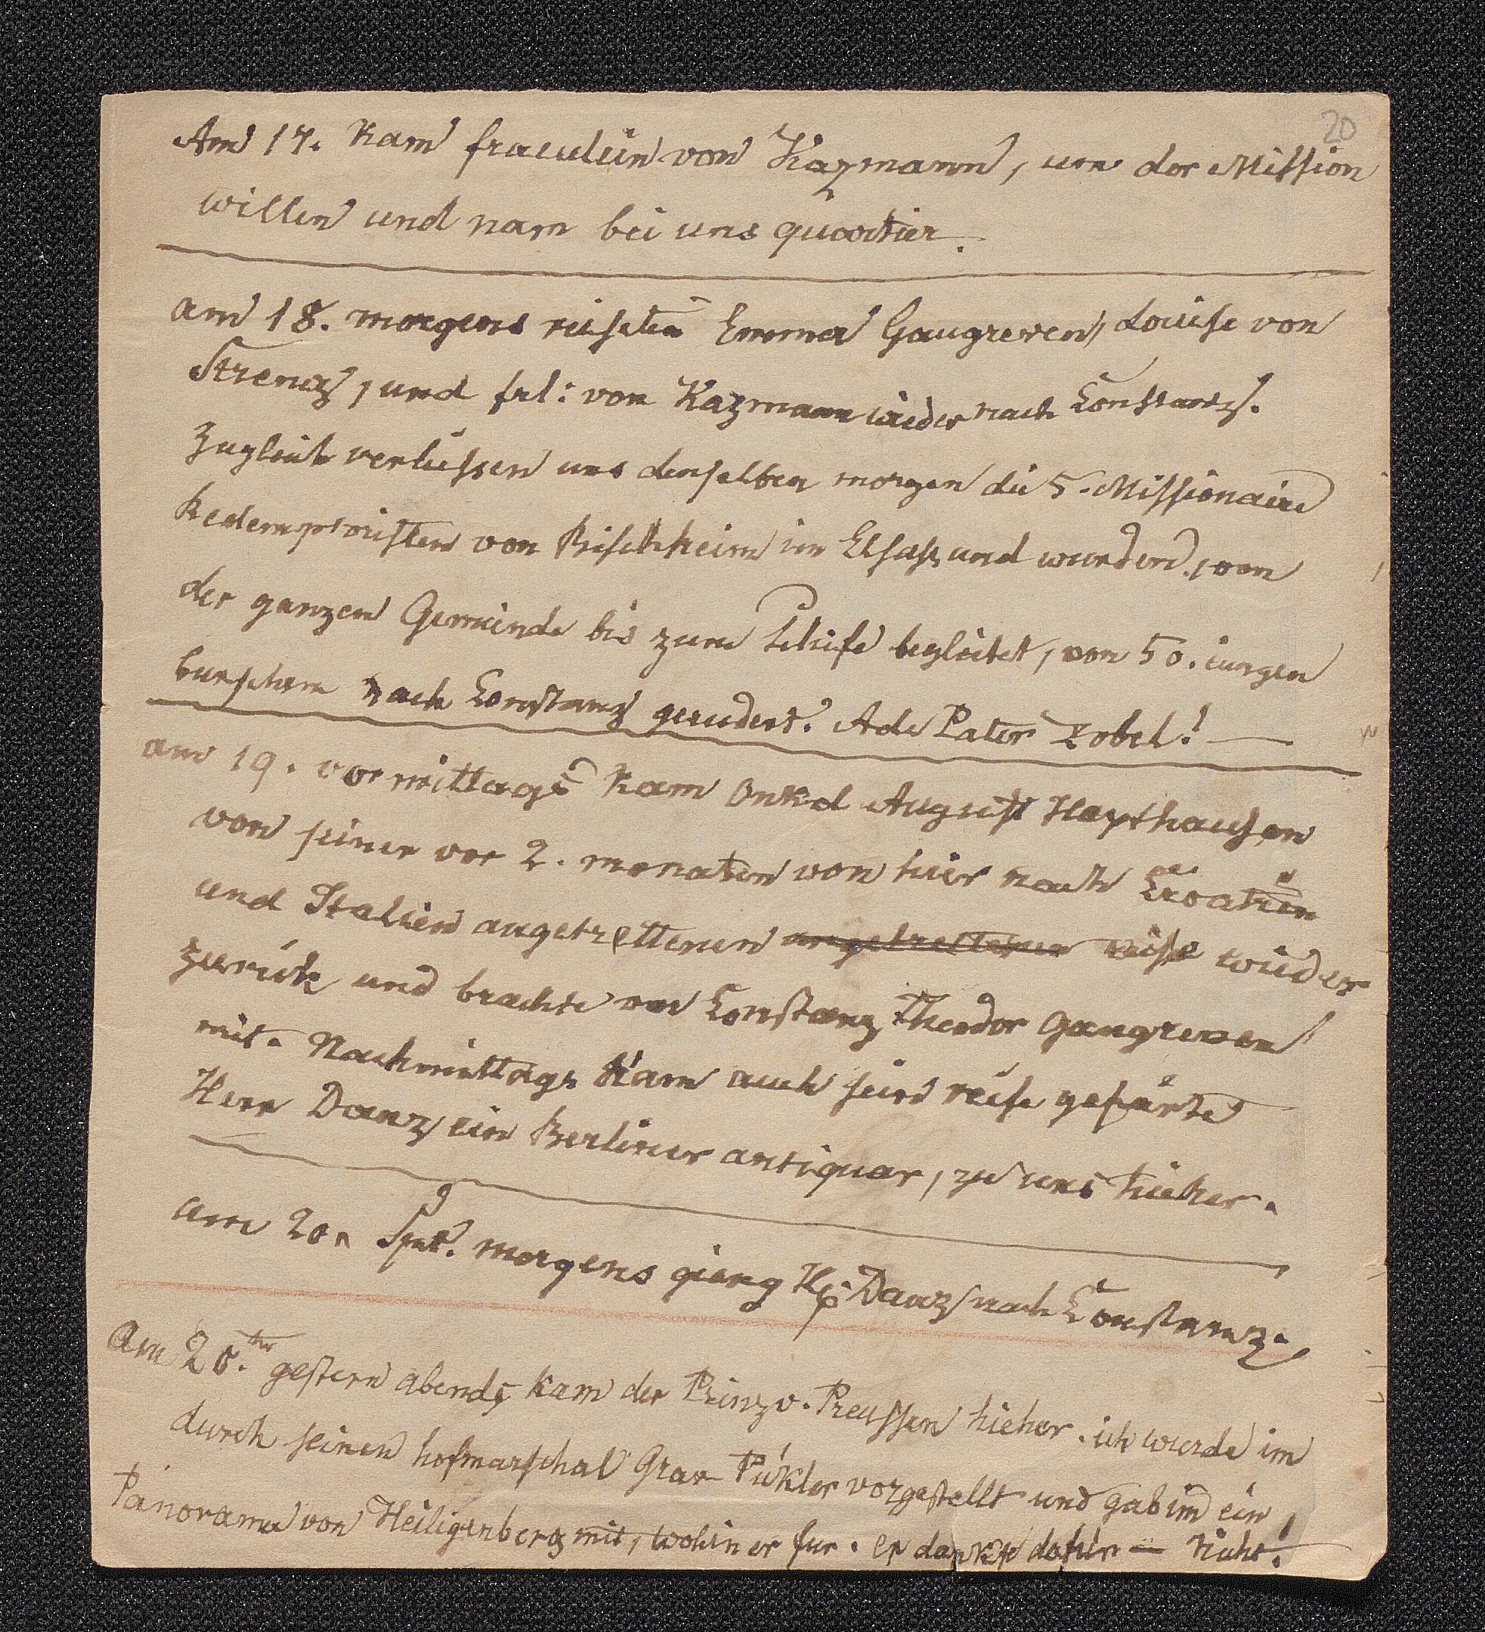 20
Am 17. kam fraeulein von Kazmann, um der Mission
willen und nam bei uns quartier.
am 18. morgens reisten Emma Gaugreven, Louise von
Strenz, und frl: von Kazmann wieder nach Constanz.
Zugleich verliessen uns denselben morgen die 5. Missionaire
Redemptoristen von Bischheim im Elsass und wurden, von
der ganzen Gemeinde bis zum Schife begleitet, von 50. iungen
burschen nach Constanz gerudert. Ade Pater Zobel! —
am 19. vormittags kam Onkel August Haxthausen
von seiner vor 2. monaten von hier nach Croatien
und Italien angetrettenen angetrettenen reise wieder
zurük und brachte von Constanz Theodor Gaugreven
mit. Nachmittags kam auch sein reise gefärte
Herr Danz, ein Berliner antiquar, zu uns hieher.
am 20. Spt. morgens gieng H: Danz nach Constanz.
Am 20.ten gestern abends kam der Prinz v. Preussen hieher. ich wurde im
durch seinen hofmarschal Graf Pükler vorgestellt und gab im ein
Panorama von Heiligenberg mit, wohin er fur. er dankte dafür — nicht!